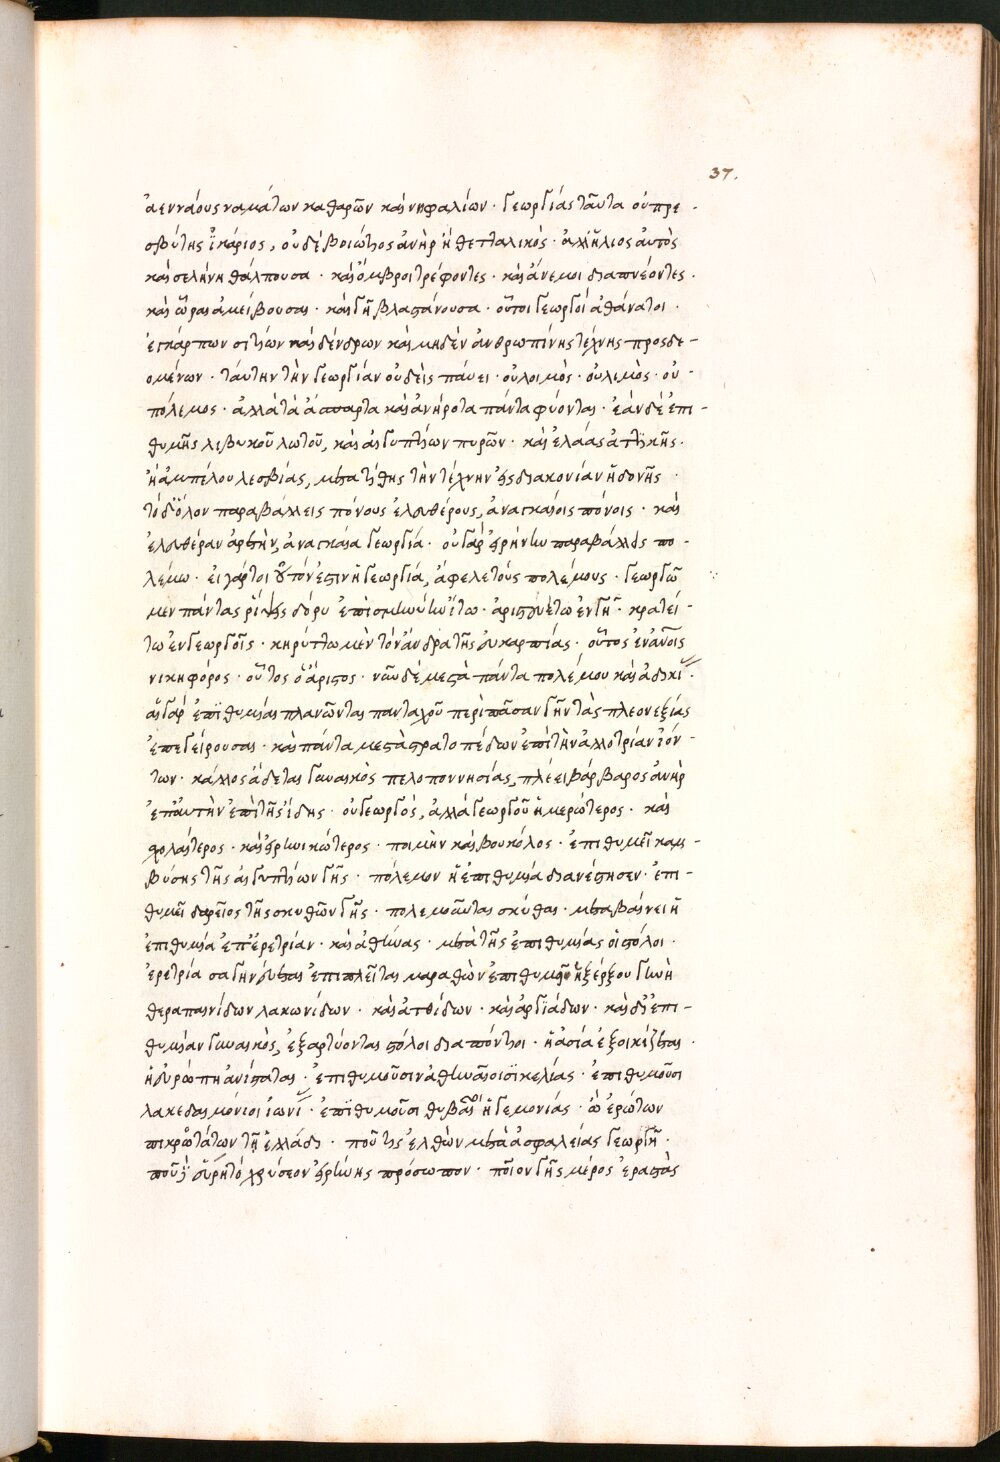 37.
ἀεννάους ναμάτων καθαρῶν καὶ νηφαλίων · γεωργίας ταῦτα οὐ πρε
σβύτης ἰκάριος, οὐδὲ βοιώτιος ἀνὴρ ἢ θετταλικός · ἀλλ' ἥλιος αὐτὸς
καὶ σελήνη θάλπουσα · καὶ ὄμβροι τρέφοντες · καὶ ἄνεμοι διαπνέοντες ·
καὶ ὧραι ἀμείβουσαι · καὶ γῆ βλαστάνουσα · οὗτοι γεωργοὶ ἀθάνατοι ·
ἐγκάρπων σιτίων καὶ δένδρων καὶ μηδὲν ἀνθρωπίνης τέχνης προσδε-
ομένων · ταύτην τὴν γεωργίαν οὐδεὶς παύει · οὐ λοιμὸς · οὐ λιμὸς · οὐ
πόλεμος · ἀλλὰ τὰ ἄσπαρτα καὶ ἀνήροτα πάντα φύονται · ἐὰν δὲ ἐπι-
θυμῇς λιβυκοῦ λωτοῦ, καὶ αἰγυπτίων πυρῶν · καὶ ἐλαίας ἀττικῆς ·
ἢ ἀμπέλου λεσβίας, μετατίθης τὴν τέχνην εἰς διακονίαν ἡδονῆς
τὸ δ' ὅλον παραβάλλεις πόνους ἐλευθέρους, ἀναγκαίοις πόνοις · καὶ
ἐλευθέραν ἀρετὴν, ἀναγκαία γεωργία · οὐ γὰρ εἰρήνην παραβάλλεις πο-
λέμω · εἰ γάρ τοι τοιοῦτόν ἐστιν ἡ γεωργία, ἄφελε τοὺς πολέμους · γεωργῶ
μεν πάντας δόρυ ἐπὶ σμινύην ἴτω · ἀριστευέτω ἐν γῇ · κρατεί-
τω ἐν γεωργοῖς · κηρύττωμεν τὸν ἄνδρα τῆς εὐκαρπίας · οὗτος
νικηφόρος · οὗτος ὁ ἄριστος · νῦν δὲ μεστὰ πάντα πολέμου καὶ ἀδικί ·
αἱ γὰρ ἐπιθυμίαι πλανῶνται πανταχοῦ περὶ πᾶσαν γῆν τὰς πλεονεξίας
ἐπεγείρουσαι · καὶ πάντα μεστὰ στρατοπέδων ἐπὶ τὴν ἀλλοτρίαν ἰόν-
των · κάλλος ᾄδεται γυναικὸς πελοποννησίας, πλέει βάρβαρος ἀνὴρ
ἐπ' αὐτὴν ἐπὶ τῆς ἴδης · οὐ γεωργός, ἀλλὰ γεωργοῦ ἡμερώτερος · καὶ
σχολαίτερος · καὶ εἰρηνικώτερος · ποιμὴν καὶ βουκόλος · ἐπιθυμεῖ καμ-
βύσης τῆς αἰγυπτίων γῆς · πόλεμον ἡ ἐπιθυμία διανέστησεν · ἐπι-
θυμεῖ δαρεῖος τῆς σκυθῶν γῆς · πολεμοῦνται σκύθαι · μεταβαίνει ἡ
ἐπιθυμία ἐπ' ἐρετρίαν · καὶ ἀθήνας · μετὰ τῆς ἐπιθυμίας οἱ στόλοι ·
ἐρετρία σαγηνεύεται ἐπιπλεῖται μαραθὼν ἐπιθυμεῖ ἡ ξέρξου γυνὴ
θεραπαινίδων λακωνίδων · καὶ ἀτθίδων · καὶ ἀργιάδων · καὶ δι' ἐπι-
θυμίαν γυναικὸς, ἐξαρτύονται στόλοι διαπόντιοι · ἡ ἀσία ἐξοικίζεται ·
ἡ εὐρώπη ἀνίσταται · ἐπιθυμοῦσιν ἀθηναῖοι σικελίας · ἐπιθυμοῦσι
λακεδαιμόνιοι ἰωνί · ἐπιθυμοῦσι θηβαῖοι ἡγεμονίας · ὦ ἐρώτων
πικροτάτων τῇ ἑλλάδι · ποῦ τις ἐλθὼν μετὰ ἀσφαλείας γεωργῇ ·
ποῦ εὕρῃ τὸ χρύσεον εἰρήνης πρόσωπον · ποῖον γῆς μέρος ἐραστὰς